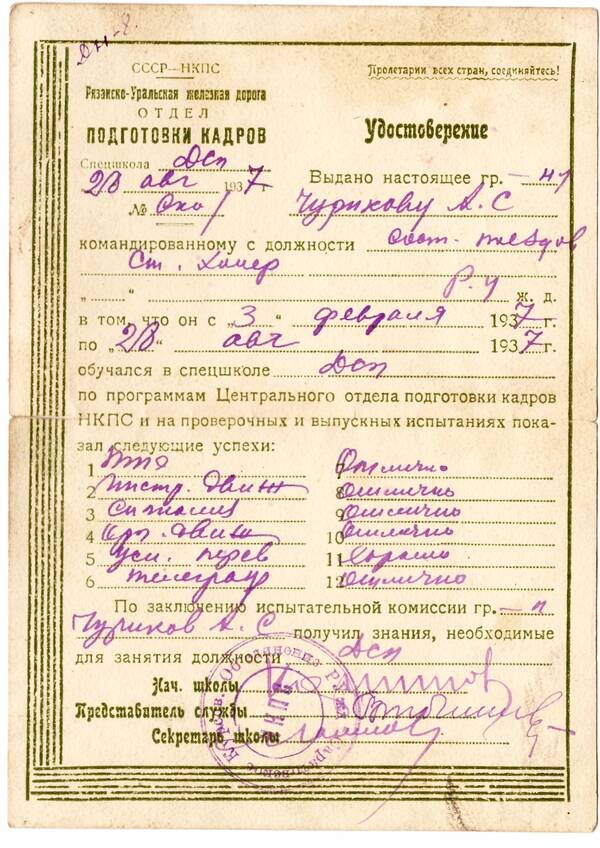 СССР—НКПС
Рязанско-Уральская железная дорога
ОТДЕЛ
ПОДГОТОВКИ КАДРОВ
Спецшкола Дсп
28 авг 1937
№
Пролетарии всех стран, соединяйтесь!
Удостоверение
Выдано настоящее гр. –ну
Чурикову А. С
командированному с должности сост. поездов
Ст. Хопер
„ “ Р. У ж. д.
в том, что он с „3 “ февраля 1937 г.
по „28“ авг 1937 г.
обучался в спецшколе Дсп
по программам Центрального отдела подготовки кадров
НКПС и на проверочных и выпускных испытаниях пока-
зал следующие успехи:
1 ПТЭ 7 Отлично
2 Инстр. движ 8 Отлично
3 Сигнализ 9 Отлично
4 Орг. движ 10 Отлично
5 Усл. перев 11 Хорошо
6 телеграф 12 Отлично
По заключению испытательной комиссии гр. –н
Чуриков А. С получил знания, необходимые
для занятия должности Дсп
Нач. школы
Представитель службы
Секретарь школы